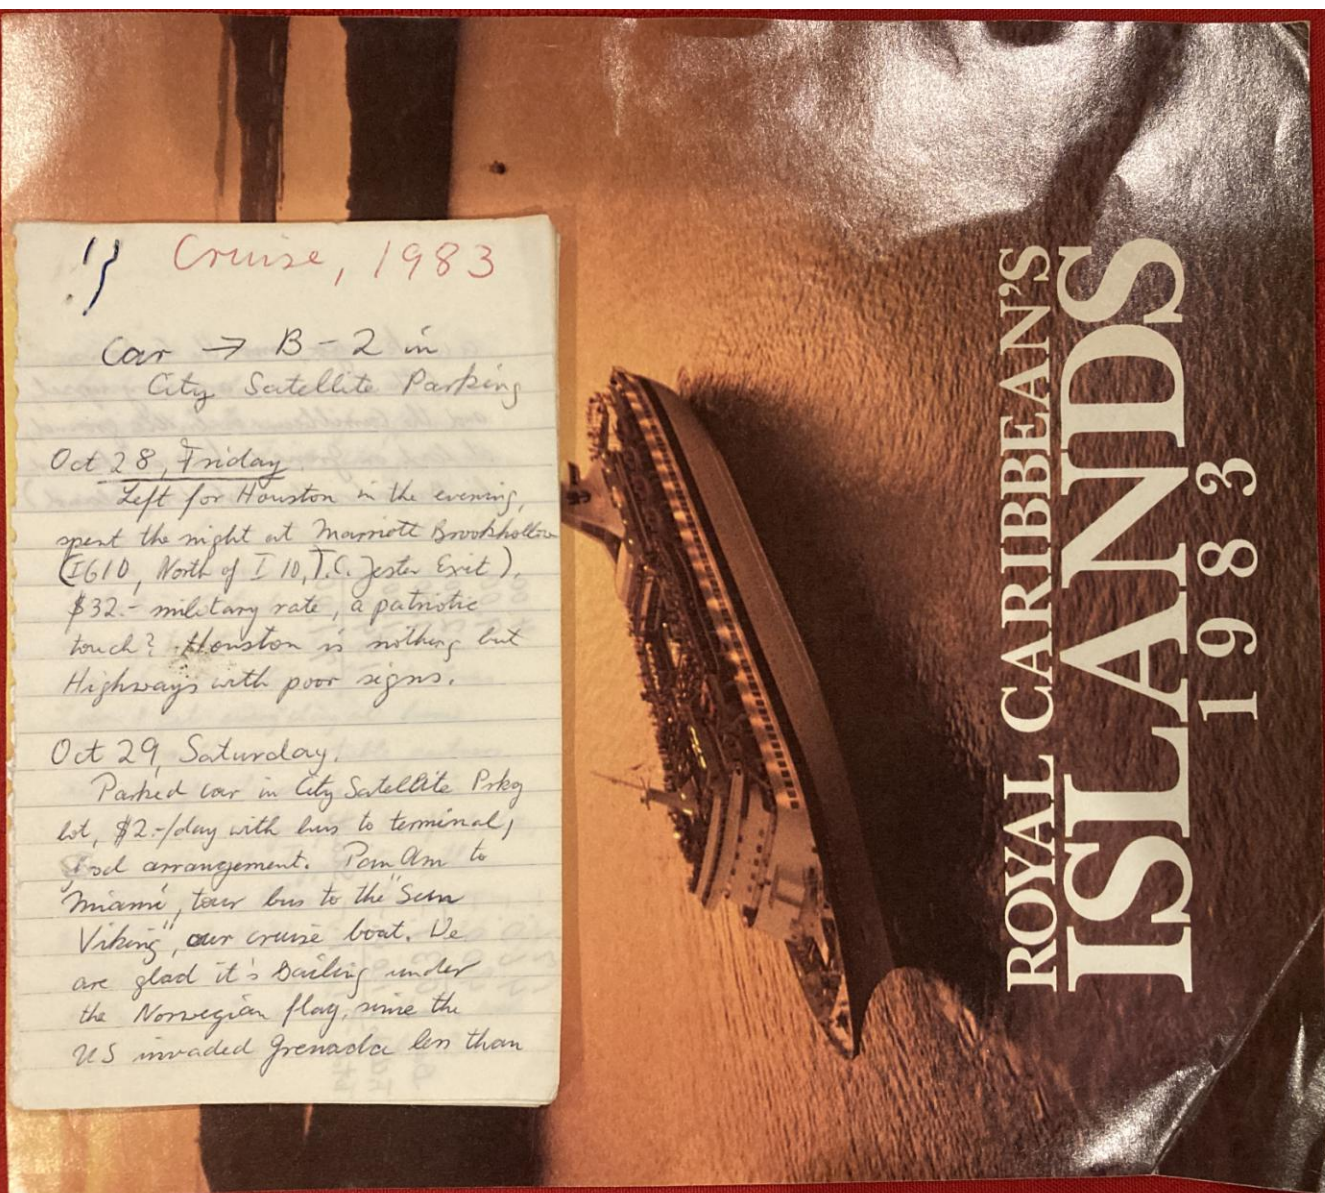 Cruise, 1983
Car → B-2 in
City Satellite Parking
Oct 28, Friday
Left for Houston in the evening,
spent the night at Marriott Brookhollow
(I610, North of I 10, T.C. Jester Exit).
$32.- military rate, a patriotic
touch? Houston is nothing but
Highways with poor signs.
Oct 29, Saturday.
Parked car in City Satellite Prkg
lot, $2.-/day with bus to terminal,
arrangement. Pan Am to
Miami, tour bus to the "Sun
Viking", our cruise boat. We
are glad it's sailing under
the Norwegian flag, since the
US invaded Grenada less than
ROYAL CARIBBEAN'S
ISLANDS
1983